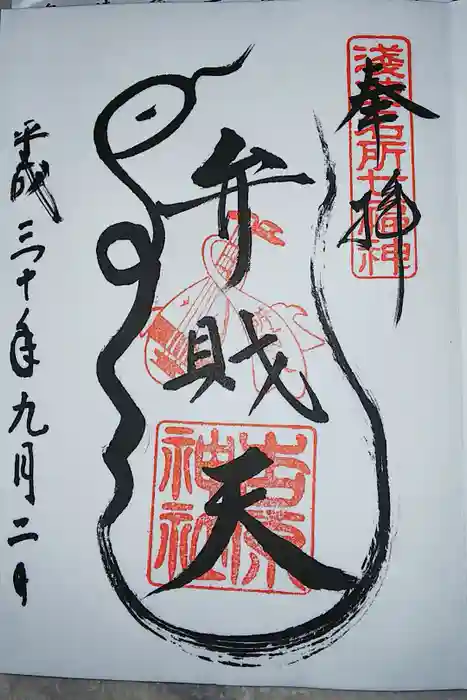 浅草名所七福神
奉拝
弁財天
吉原神社
平成三十年九月二日